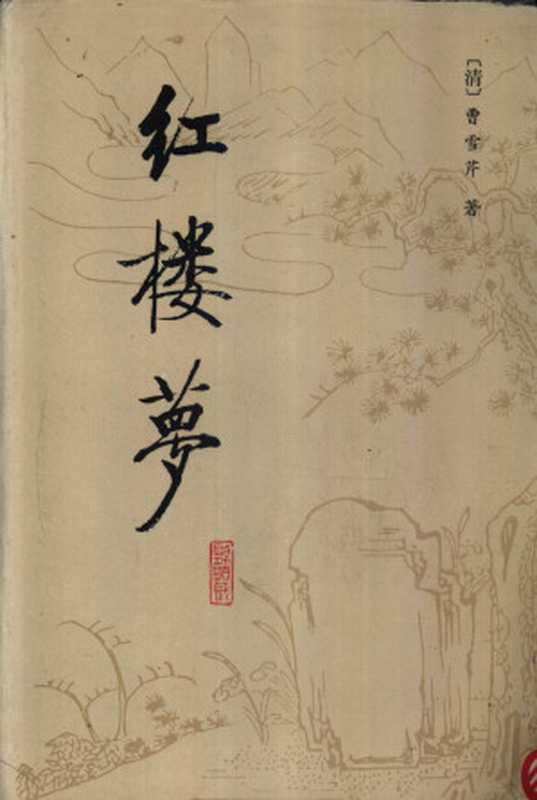 〔清〕曹雪芹 著
红楼夢